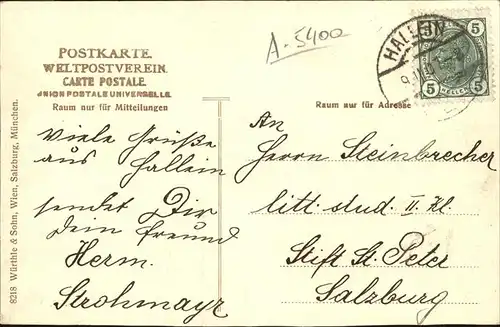 POSTKARTE.
WELTPOSTVEREIN.
CARTE POSTALE.
UNION POSTALE UNIVERSELLE.
Raum nur für Mitteilungen
Viele Grüße
aus Hallein
sendet Dir
Dein Freund
Herm.
Strohmayr
8218 Würthle & Sohn, Wien, Salzburg, München.
A-5400
HALLEIN
5 5
5 HELLER 5
Raum nur für Adresse
An
Herrn Steinbrecher
litt. stud. II. Kl.
Stift St. Peter
Salzburg